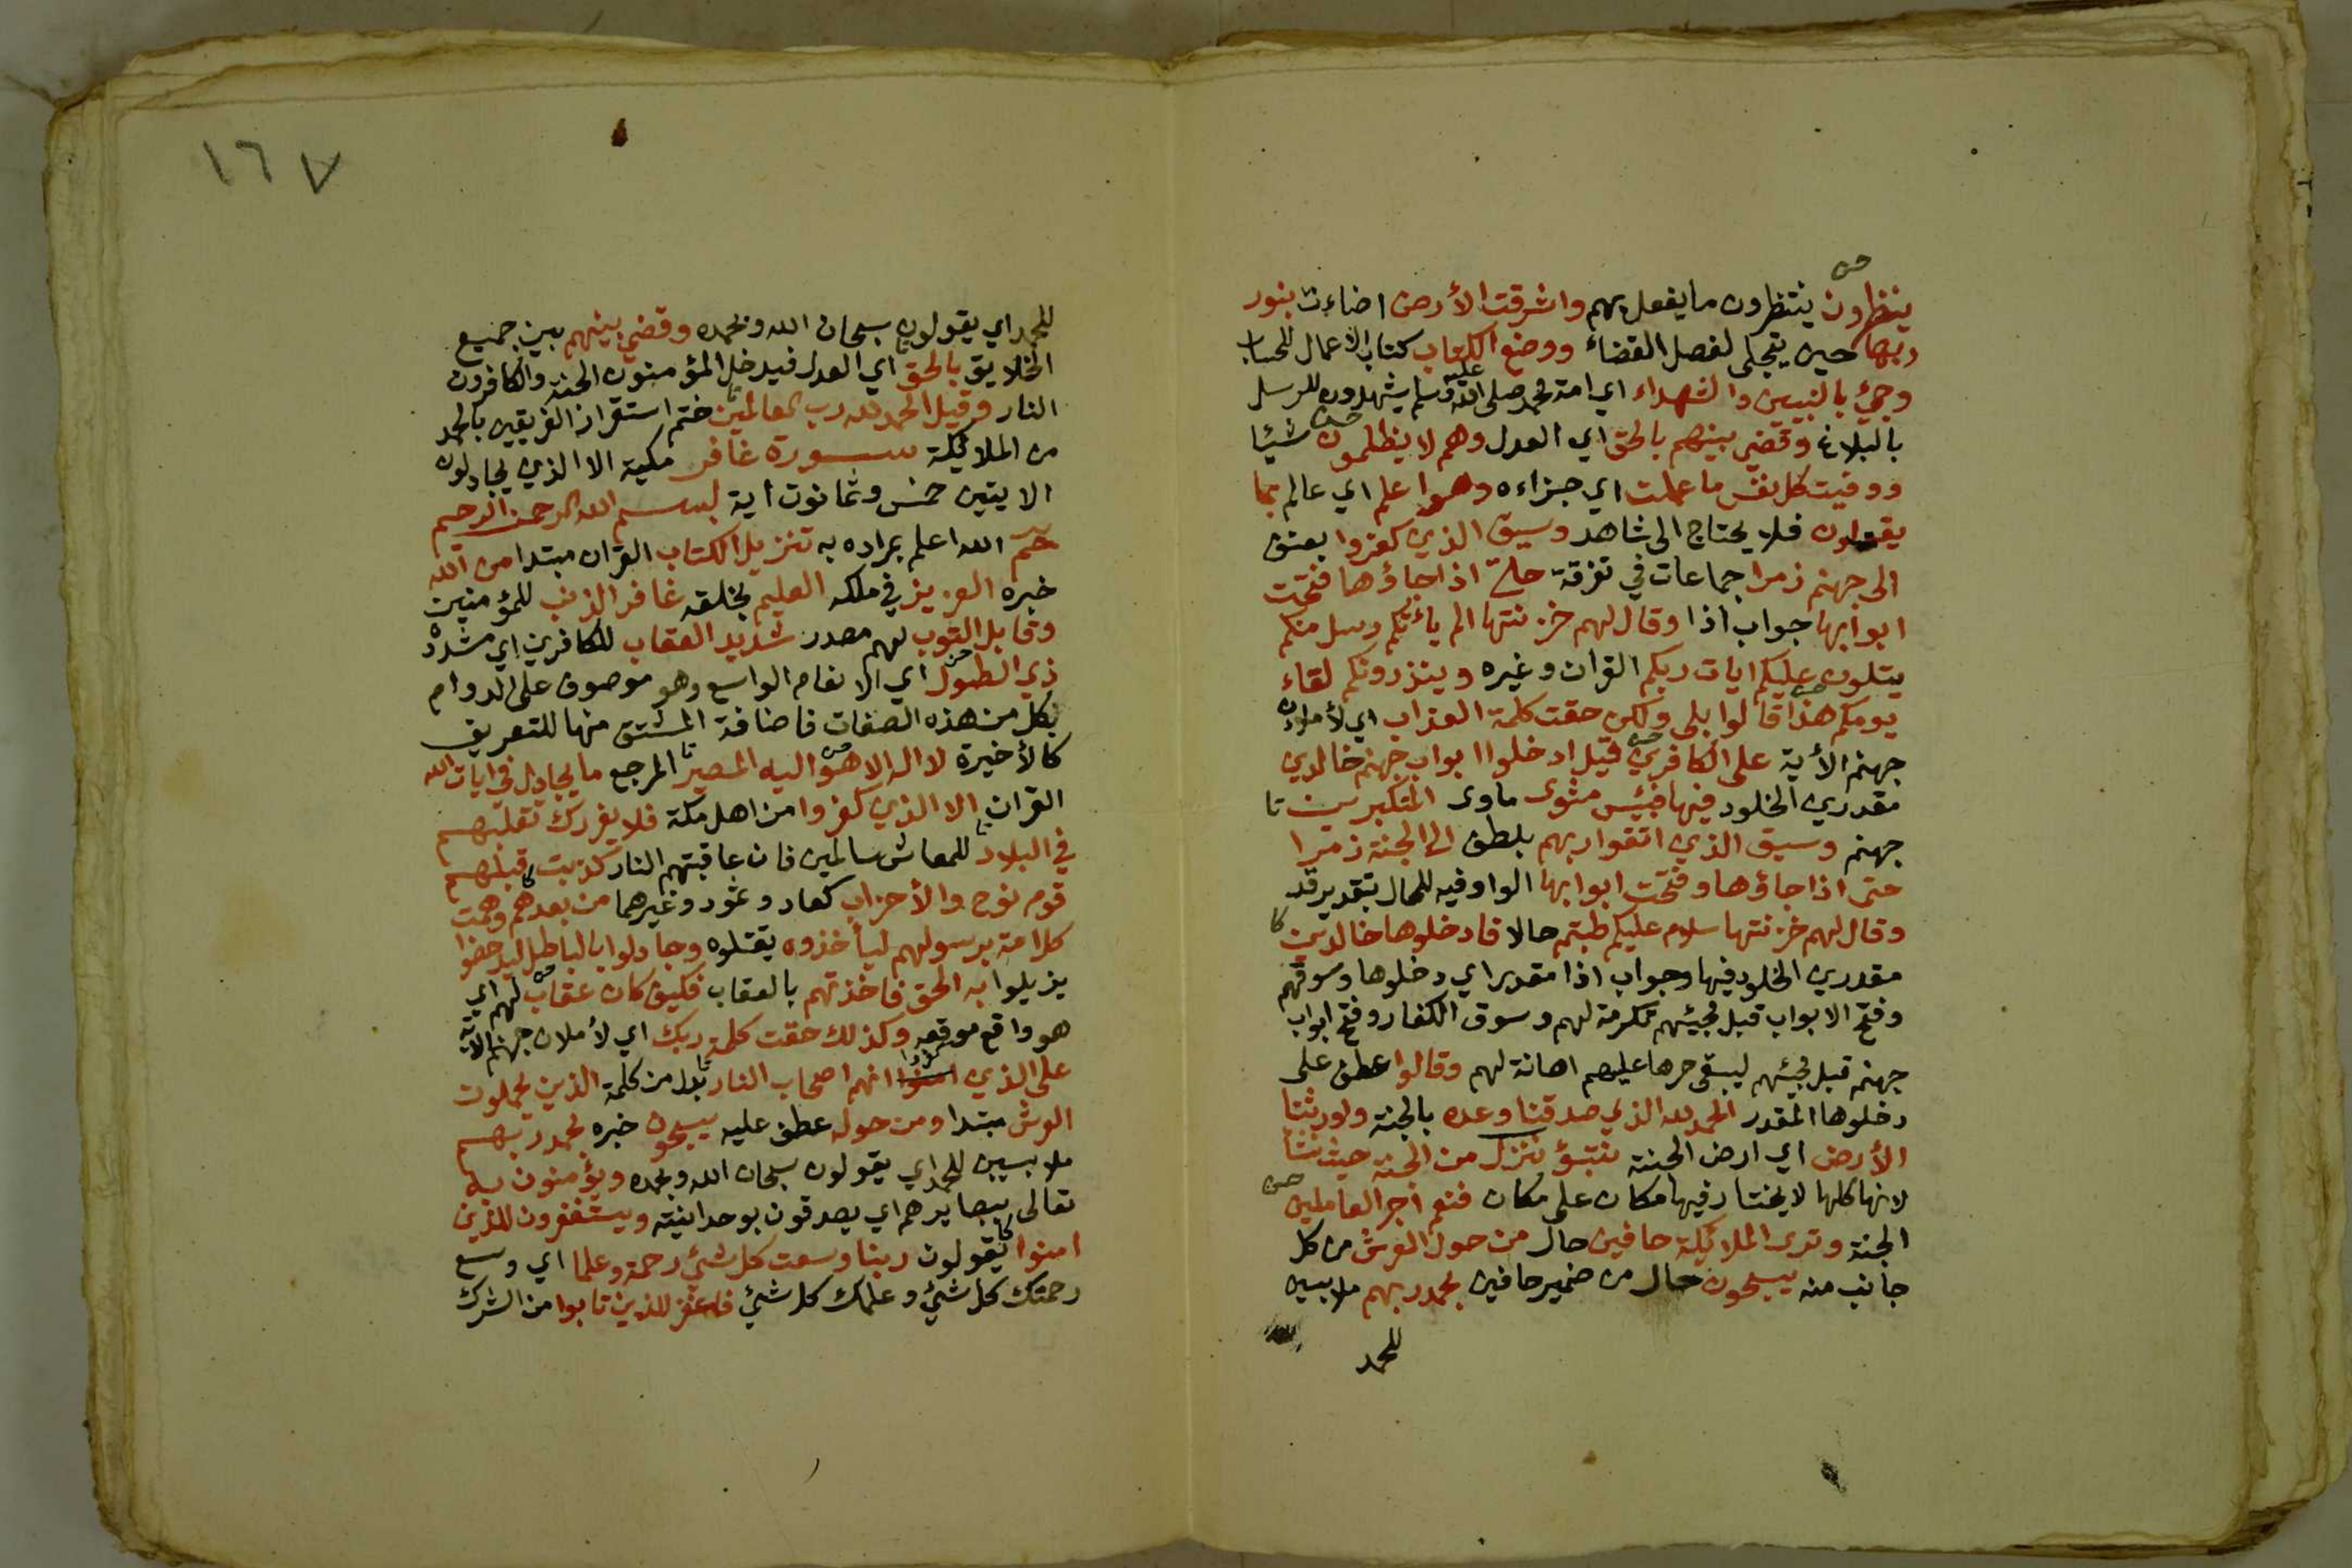 ينظرون ينتظرون ما يفعل بهم واشرقت الأرض اضاءت بنور
ربها حين يتجلى لفصل القضاء ووضع الكتاب كتاب الأعمال للحساب
وجيئ بالنبيين والشهداء اي امة محمد صلى الله عليه وسلم يشهدون للرسل
بالبلاغ وقضي بينهم بالحق اي العدل وهم لا يظلمون شيئا
ووفيت كل نفس ما عملت اي جزاءه وهو اعلم اي عالم بما
يفعلون فلا يحتاج الى شاهد وسيق الذين كفروا بعنف
الى جهنم زمرا جماعات في تفرقة حتى اذا جاؤها فتحت
ابوابها جواب اذا وقال لهم خزنتها الم يأتكم رسل منكم
يتلون عليكم ايات ربكم القران وغيره وينذرونكم لقاء
يومكم هذا قالوا بلى ولكن حقت كلمة العذاب اي لأملان
جهنم الأية على الكافرين قيل ادخلوا ابواب جهنم خالدين
مقدرين الخلود فيها فبئس مثوى ماوى المتكبرين
جهنم وسيق الذين اتقوا ربهم بلطف الى الجنة زمرا
حتى اذا جاؤها وفتحت ابوابها الواو فيه للحال بتقدير قد
وقال لهم خزنتها سلام عليكم طبتم حالا فادخلوها خالدين
مقدرين الخلود فيها وجواب اذا مقدر اي دخلوها وسوقهم
وفتح الابواب قبل مجيئهم تكرمة لهم وسوق الكفار وفتح ابواب
جهنم قبل مجيئهم ليبقى حرها عليهم اهانة لهم وقالوا عطف على
دخلوها المقدر الحمد لله الذي صدقنا وعده بالجنة واورثنا
الأرض اي ارض الجنة نتبؤ ننزل من الجنة حيث نشا
لانها كلها لا يختار فيها مكان على مكان فنعم اجر العاملين
الجنة وترى الملائكة حافين حال من حول العرش من كل
جانب منه يسبحون حال من ضمير حافين بحمد ربهم ملابسين
للحمد
١٦٧
للحمد اي يقولون سبحان الله وبحمده وقضي بينهم بين جميع
الخلايق بالحق اي العدل فيدخل المؤمنون الجنة والكافرون
النار وقيل الحمد لله رب العالمين ختم استقرار الفريقين بالحمد
من الملائكة سورة غافر مكية الا الذين يجادلون
الايتين خمس وثمانون اية بسم الله الرحمن الرحيم
حم الله اعلم بمراده به تنزيل الكتاب القران مبتدا من الله
خبره العزيز في ملكه العليم بخلقه غافر الذنب للمؤمنين
وقابل التوب لهم مصدر شديد العقاب للكافرين اي مشدده
ذي الطول اي الانعام الواسع وهو موصوف على الدوام
بكل من هذه الصفات فاضافة المشتق منها للتعريف
كالأخيرة لا اله الا هو اليه المصير المرجع ما يجادل في ايات الله
القران الا الذين كفروا من اهل مكة فلا يغررك تقلبهم
في البلاد للمعاش سالمين فان عاقبتهم النار كذبت قبلهم
قوم نوح والأحزاب كعاد وثمود وغيرهما من بعدهم وهمت
كل امة برسولهم ليأخذوه يقتلوه وجادلوا بالباطل ليدحضوا
يزيلوا به الحق فاخذتهم بالعقاب فكيف كان عقاب لهم اي
هو واقع موقعه وكذلك حقت كلمة ربك اي لأملان جهنم الاية
على الذين امنوا كفروا انهم اصحاب النار بدل من كلمة الذين يحملون
العرش مبتدا ومن حوله عطف عليه يسبحون خبره بحمد ربهم
ملابسين للحمد اي يقولون سبحان الله وبحمده ويؤمنون به
تعالى ببصايرهم اي يصدقون بوحدانيته ويستغفرون للذين
امنوا يقولون ربنا وسعت كل شيئ رحمة وعلما اي وسع
رحمتك كل شيئ وعلمك كل شيئ فاغفر للذين تابوا من الشرك